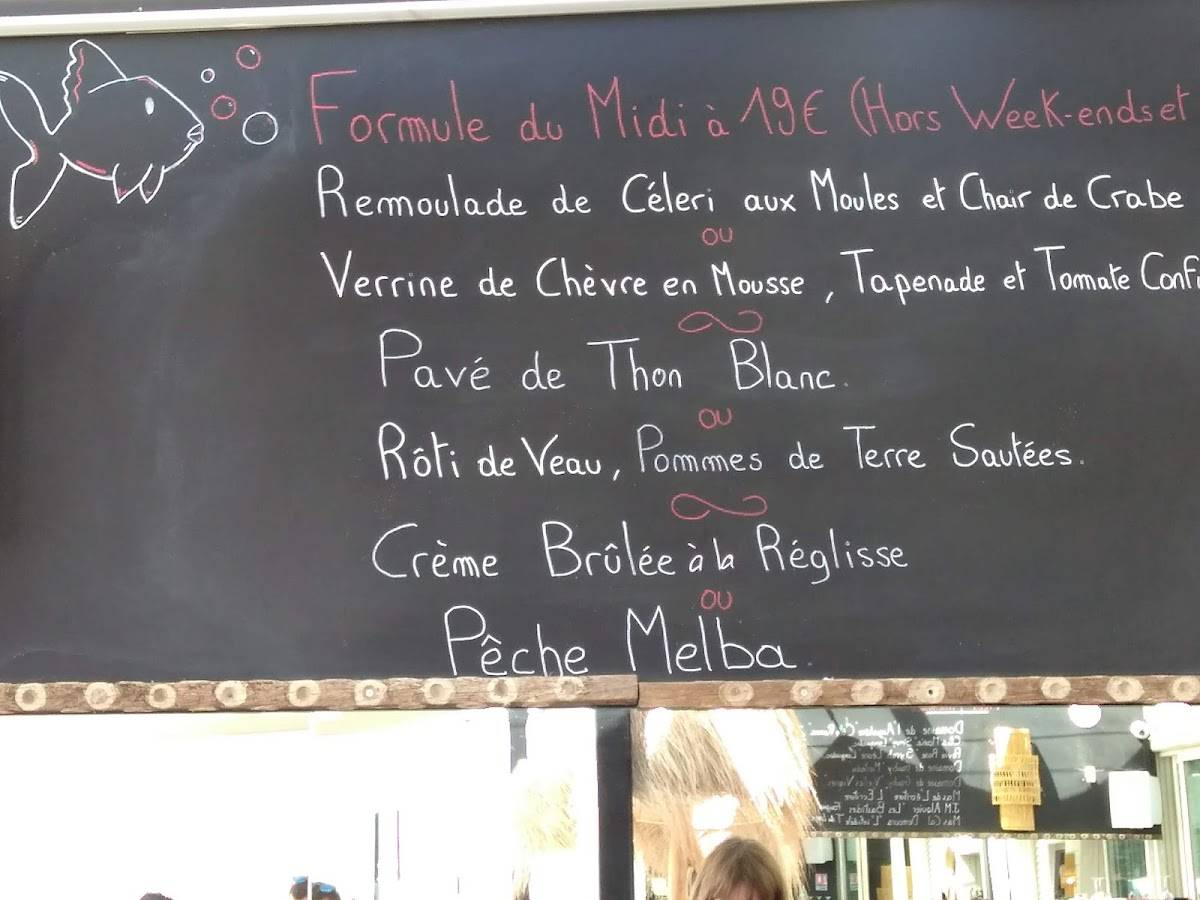 Formule du Midi à 19€ (Hors Week-ends et
Remoulade de Céleri aux Moules et Chair de Crabe
ou
Verrine de Chèvre en Mousse, Tapenade et Tomate Confi
Pavé de Thon Blanc.
ou
Rôti de Veau, Pommes de Terre Sautées.
Crème Brûlée à la Réglisse
ou
Pêche Melba.